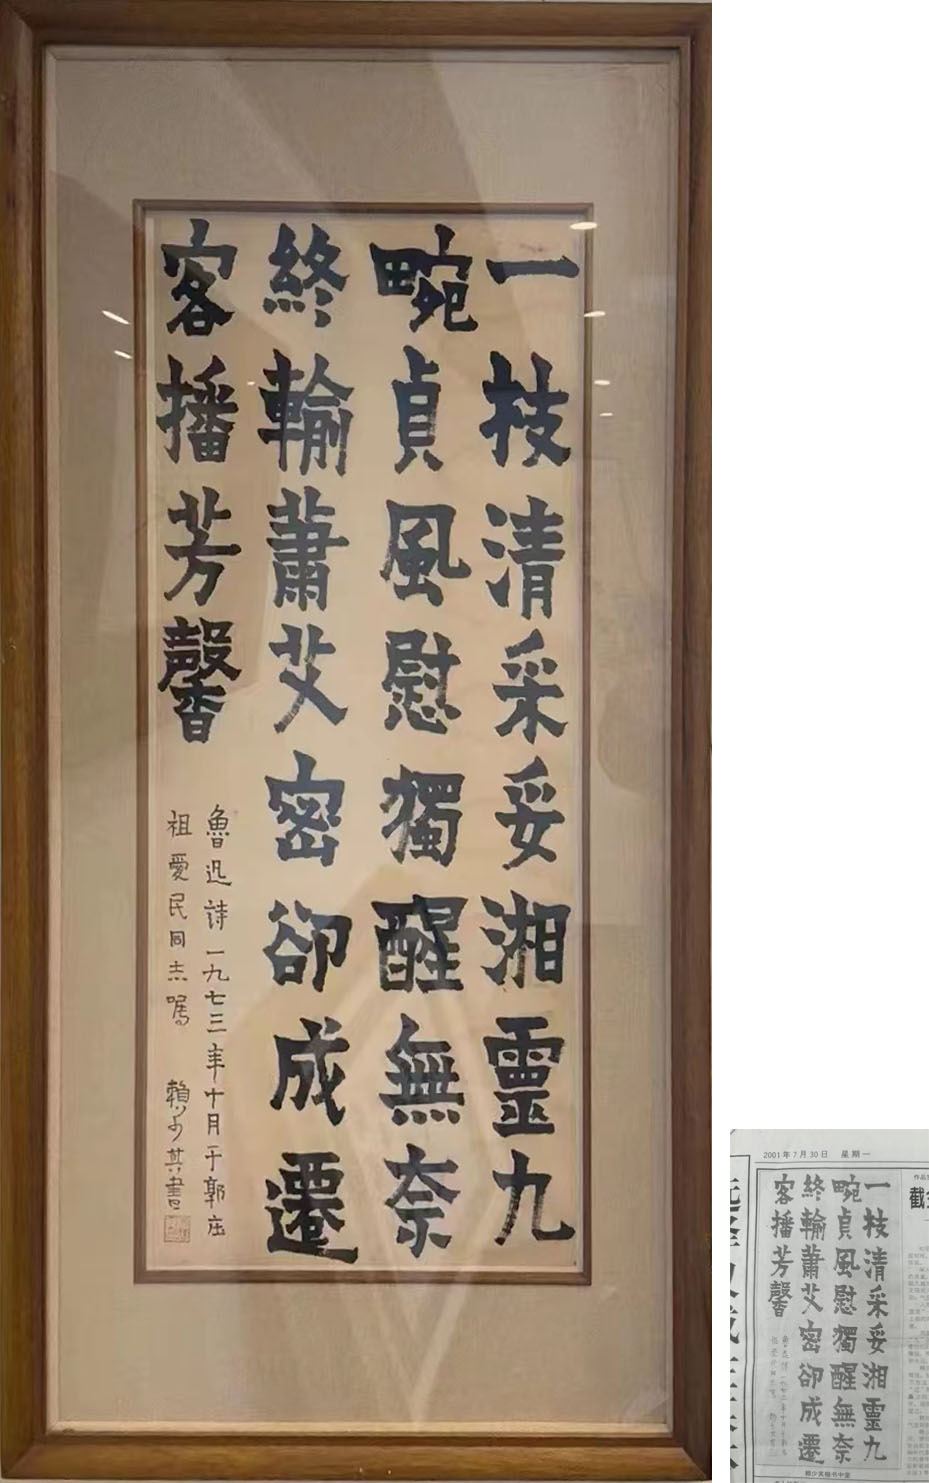 一枝清采妥湘靈九
畹貞風慰獨醒無奈
終輸蕭艾密卻成遷
客播芳馨
魯迅詩一九七三年十月于郭庄
祖愛民同志嘱 賴少其書
2001年7月30日 星期一
一枝清采妥湘靈九
畹貞風慰獨醒無奈
終輸蕭艾密卻成遷
客播芳馨
賴少其楷書中堂